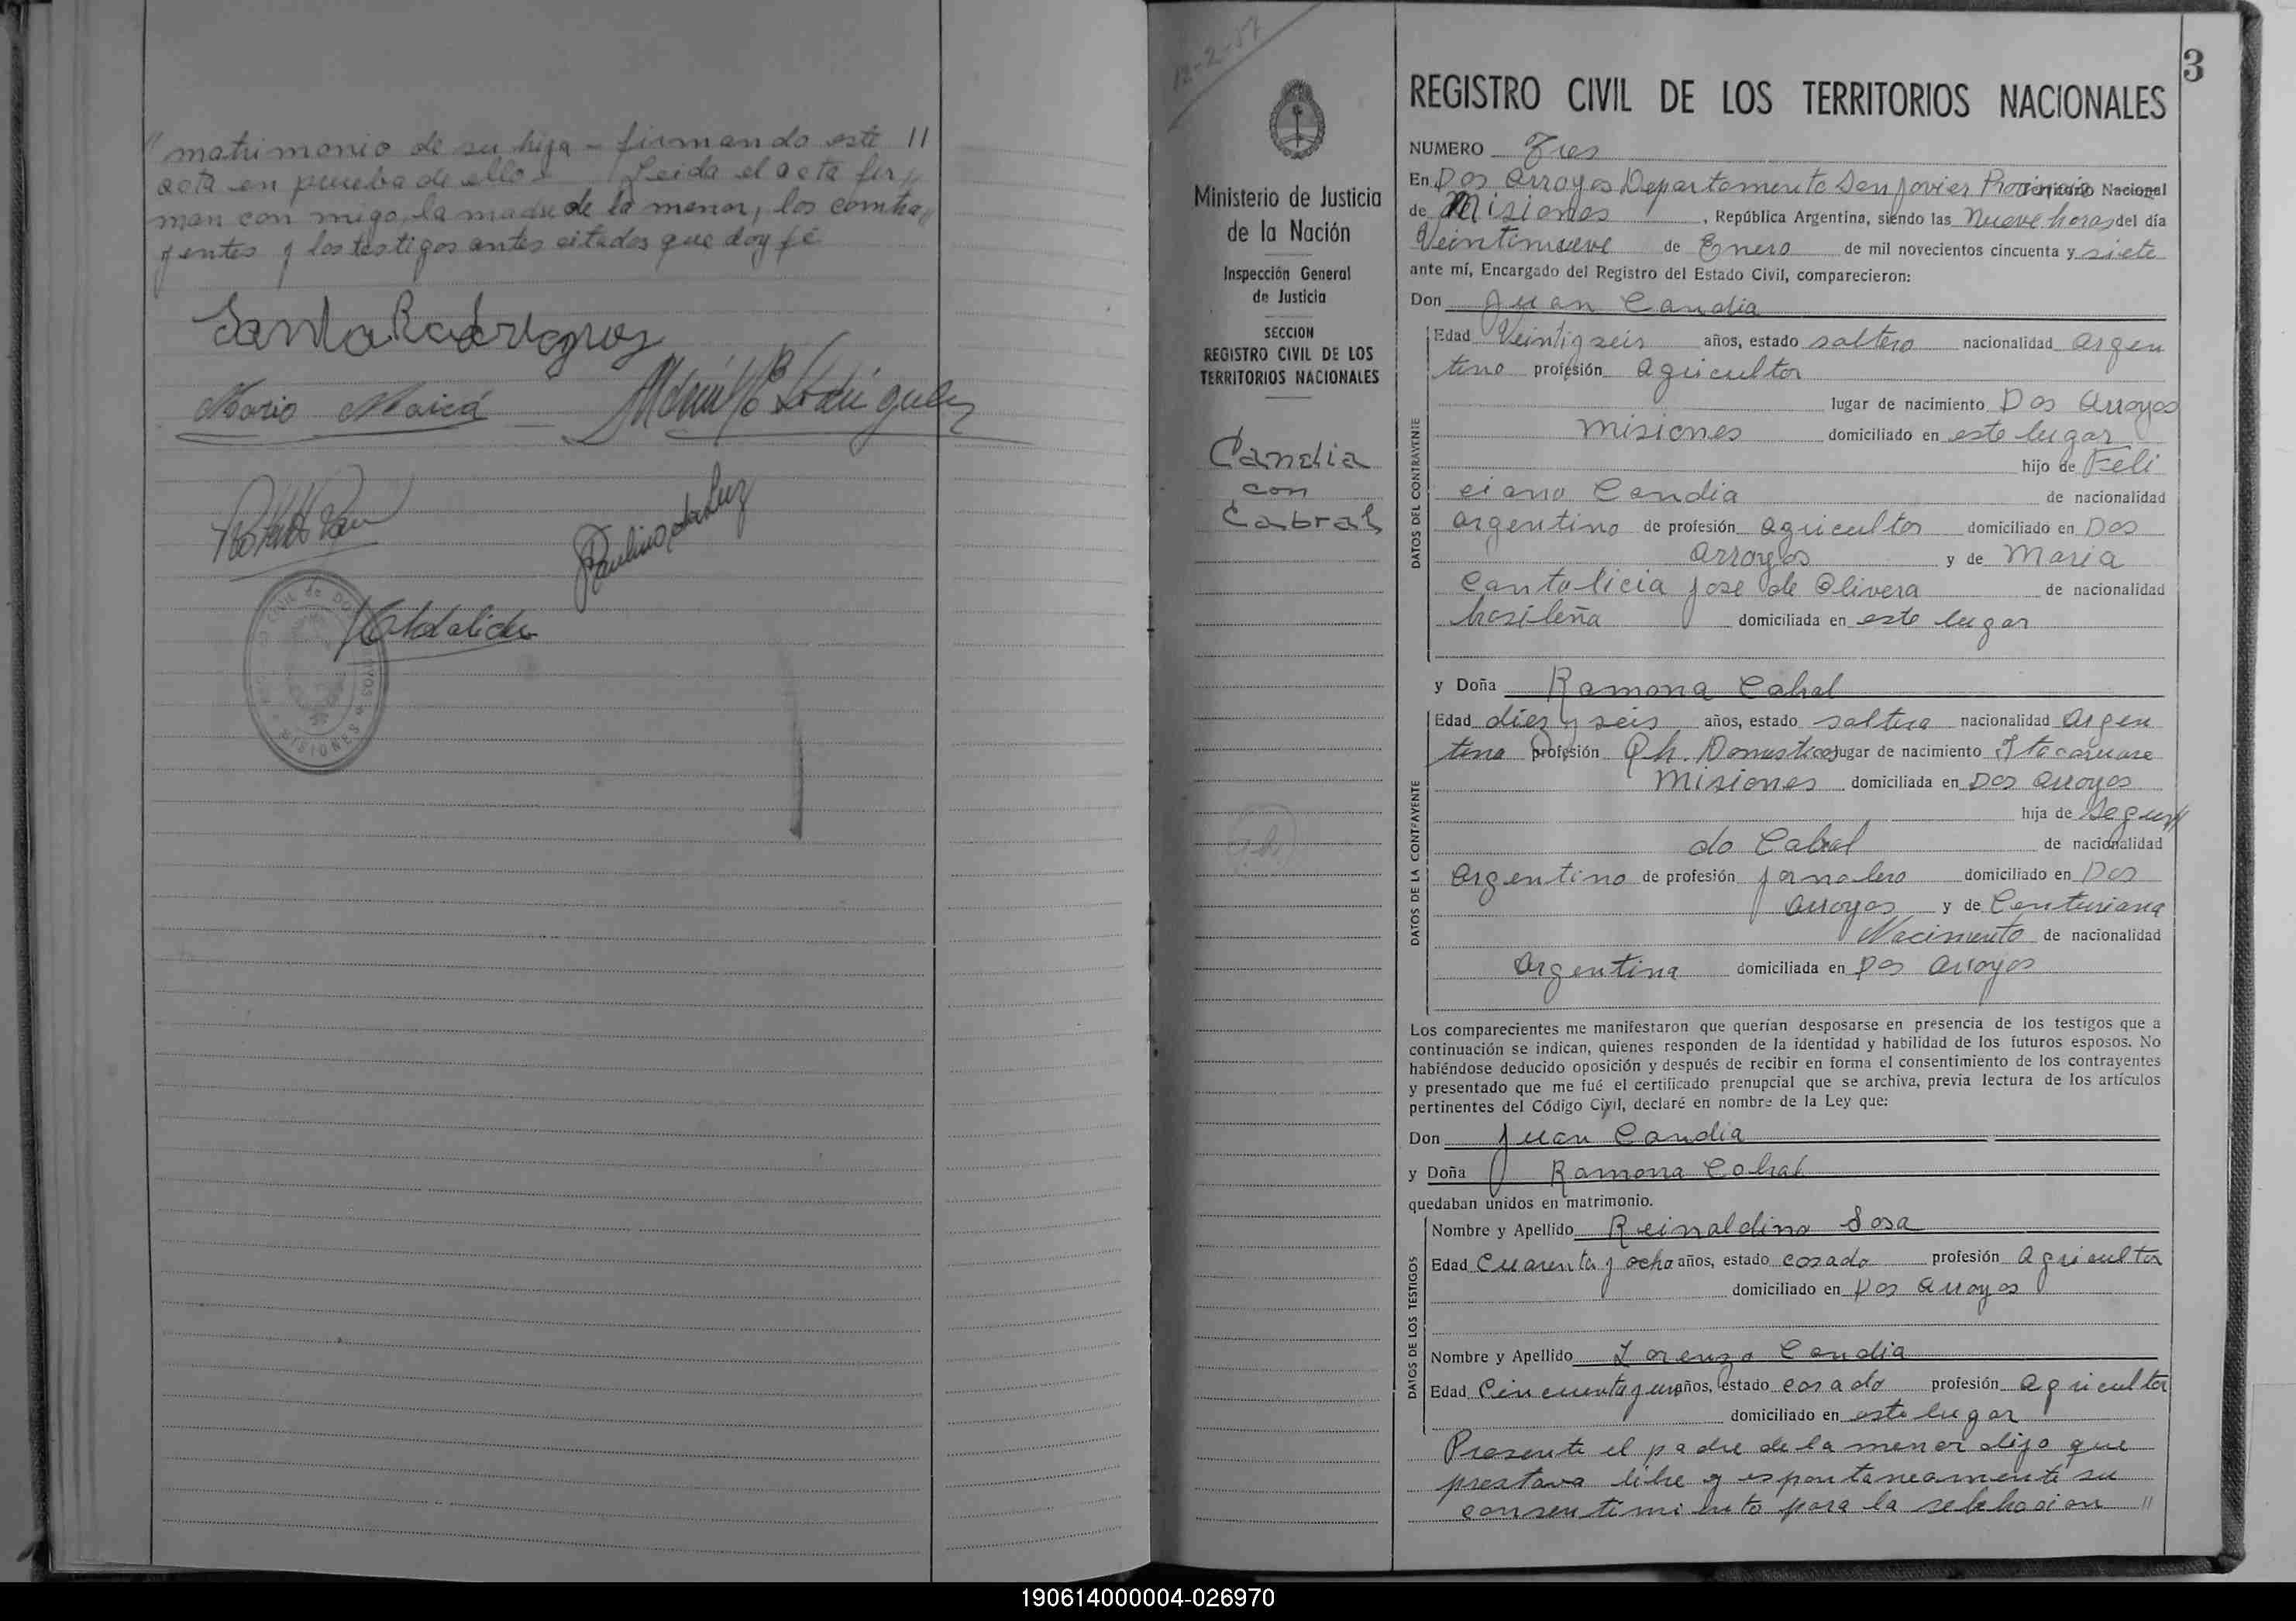 " matrimonio de su hija - firmando este "
acta en prueba de ello - Leida el acta fir //
man con migo, la madre de la menor, los contra //
yentes y los testigos antes citados que doy fé
Mario
Paulino da Luz
CIVIL de DOS ARROYOS
MISIONES
12-2-57
Ministerio de Justicia
de la Nación
Inspección General
de Justicia
SECCION
REGISTRO CIVIL DE LOS
TERRITORIOS NACIONALES
Candia
con
Cabral
3
REGISTRO CIVIL DE LOS TERRITORIOS NACIONALES
NUMERO Tres
En Dos Arroyos Departamento San Javier Provincia Territorio Nacional
de Misiones, República Argentina, siendo las nueve horas del día
Veintinueve de Enero de mil novecientos cincuenta y siete
ante mí, Encargado del Registro del Estado Civil, comparecieron:
Don Juan Candia
DATOS DEL CONTRAYENTE
Edad Veintiy seis años, estado soltero nacionalidad argen
tino profesión agricultor
lugar de nacimiento Dos Arroyos
misiones domiciliado en este lugar
hijo de Feli
ciano Candia de nacionalidad
argentino de profesión agricultor domiciliado en Dos
arroyos y de Maria
Cantalicia jose de Olivera de nacionalidad
brasileña domiciliada en este lugar
y Doña Ramona Cabral
DATOS DE LA CONTRAYENTE
Edad diez y seis años, estado soltera nacionalidad argen
tina profesión Qh. Domesticos lugar de nacimiento Itacaruare
misiones domiciliada en Dos arroyos
hija de Segun //
do Cabral de nacionalidad
argentino de profesión jornalero domiciliado en Dos
arroyos y de Centuriana
Nacimento de nacionalidad
argentina domiciliada en Dos arroyos
Los comparecientes me manifestaron que querían desposarse en presencia de los testigos que a
continuación se indican, quienes responden de la identidad y habilidad de los futuros esposos. No
habiéndose deducido oposición y después de recibir en forma el consentimiento de los contrayentes
y presentado que me fué el certificado prenupcial que se archiva, previa lectura de los artículos
pertinentes del Código Civil, declaré en nombre de la Ley que:
Don Juan Candia
y Doña Ramona Cabral
quedaban unidos en matrimonio.
DATOS DE LOS TESTIGOS
Nombre y Apellido Reinaldino Sosa
Edad Cuarenta y ocho años, estado casado profesión agricultor
domiciliado en Dos arroyos
Nombre y Apellido Lorenzo Candia
Edad Cincuenta y un años, estado casado profesión agricultor
domiciliado en este lugar
Presente el padre de la menor dijo que
prestava libre y espontaneamente su
consentimiento para la selebracion "
190614000004-026970